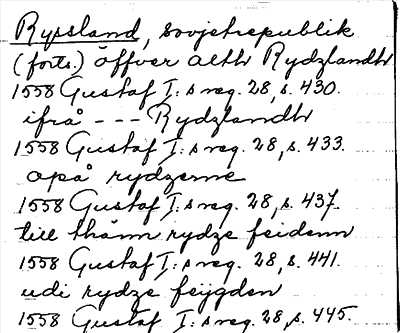 Ryssland, Sovjetrepublik
(forts.) öffver alth Rydzlandh
1558 Gustaf I:s reg. 28, s. 430.
ifrå - - - Rydzlandh
1558 Gustaf I:s reg. 28, s. 433.
opå rydzerne
1558 Gustaf I:s reg. 28, s. 437.
till thänn rydze feidenn
1558 Gustaf I:s reg. 28, s. 441.
udi rydze feijgden
1558 Gustaf I:s reg. 28, s. 445.